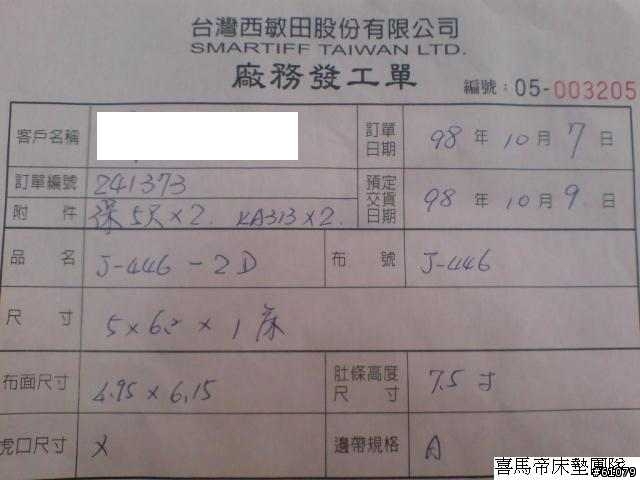 台灣西敏田股份有限公司
SMARTIFF TAIWAN LTD.
廠務發工單
編號：05-003205
客戶名稱 訂單日期 98 年 10 月 7 日
訂單編號 241373 預定交貨日期 98 年 10 月 9 日
附件 保 5尺×2. KA313×2.
品名 J-446-2D 布號 J-446
尺寸 5×6.2×1床
布面尺寸 4.95×6.15 肚條高度尺寸 7.5寸
虎口尺寸 × 邊帶規格 A
喜馬帝床墊團隊
#61079